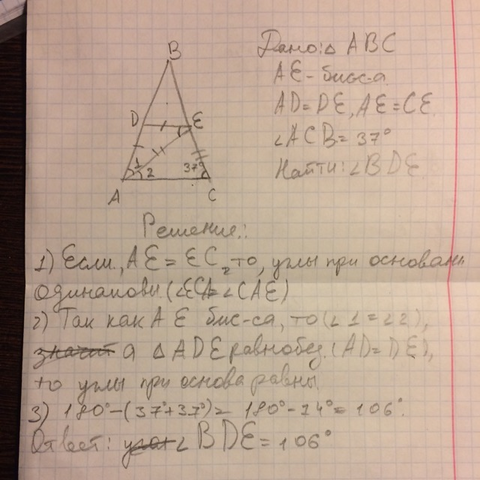 Дано: △ ABC
AE - бис-са
AD = DE, AE = CE.
∠ACB = 37°
Найти: ∠BDE
B
D
E
1
2
37°
A
C
Решение:
1) Если, AE = EC, то, углы при основани
одинаковы (∠ECA = ∠CAE)
2) Так как AE бис-са, то (∠1 = ∠2),
значит а △ADE равнобед. (AD = DE),
то углы при основа равны
3) 180° - (37° + 37°) = 180° - 74° = 106°.
Ответ: угол ∠BDE = 106°